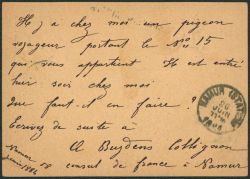 Il y a chez moi un pigeon
voyageur portant le No 15
qui vous appartient Il est entré
hier soir chez moi
Que faut-il en faire ?
Ecrivez de suite à
A Buydens Collignon
consul de france à Namur
Namur
juin 1886
NAMUR (STATION)
26
JUIN
1886